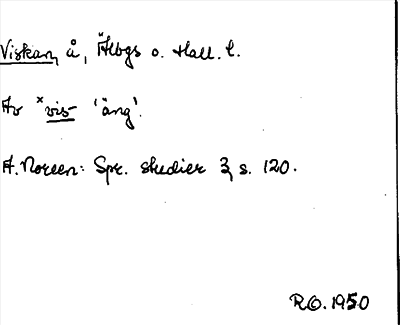 Viskan, å, Älvgs o. Hall. l.
Av *vis- 'äng'.
A. Noreen: Spr. studier 3, s. 120.
R.O. 1950